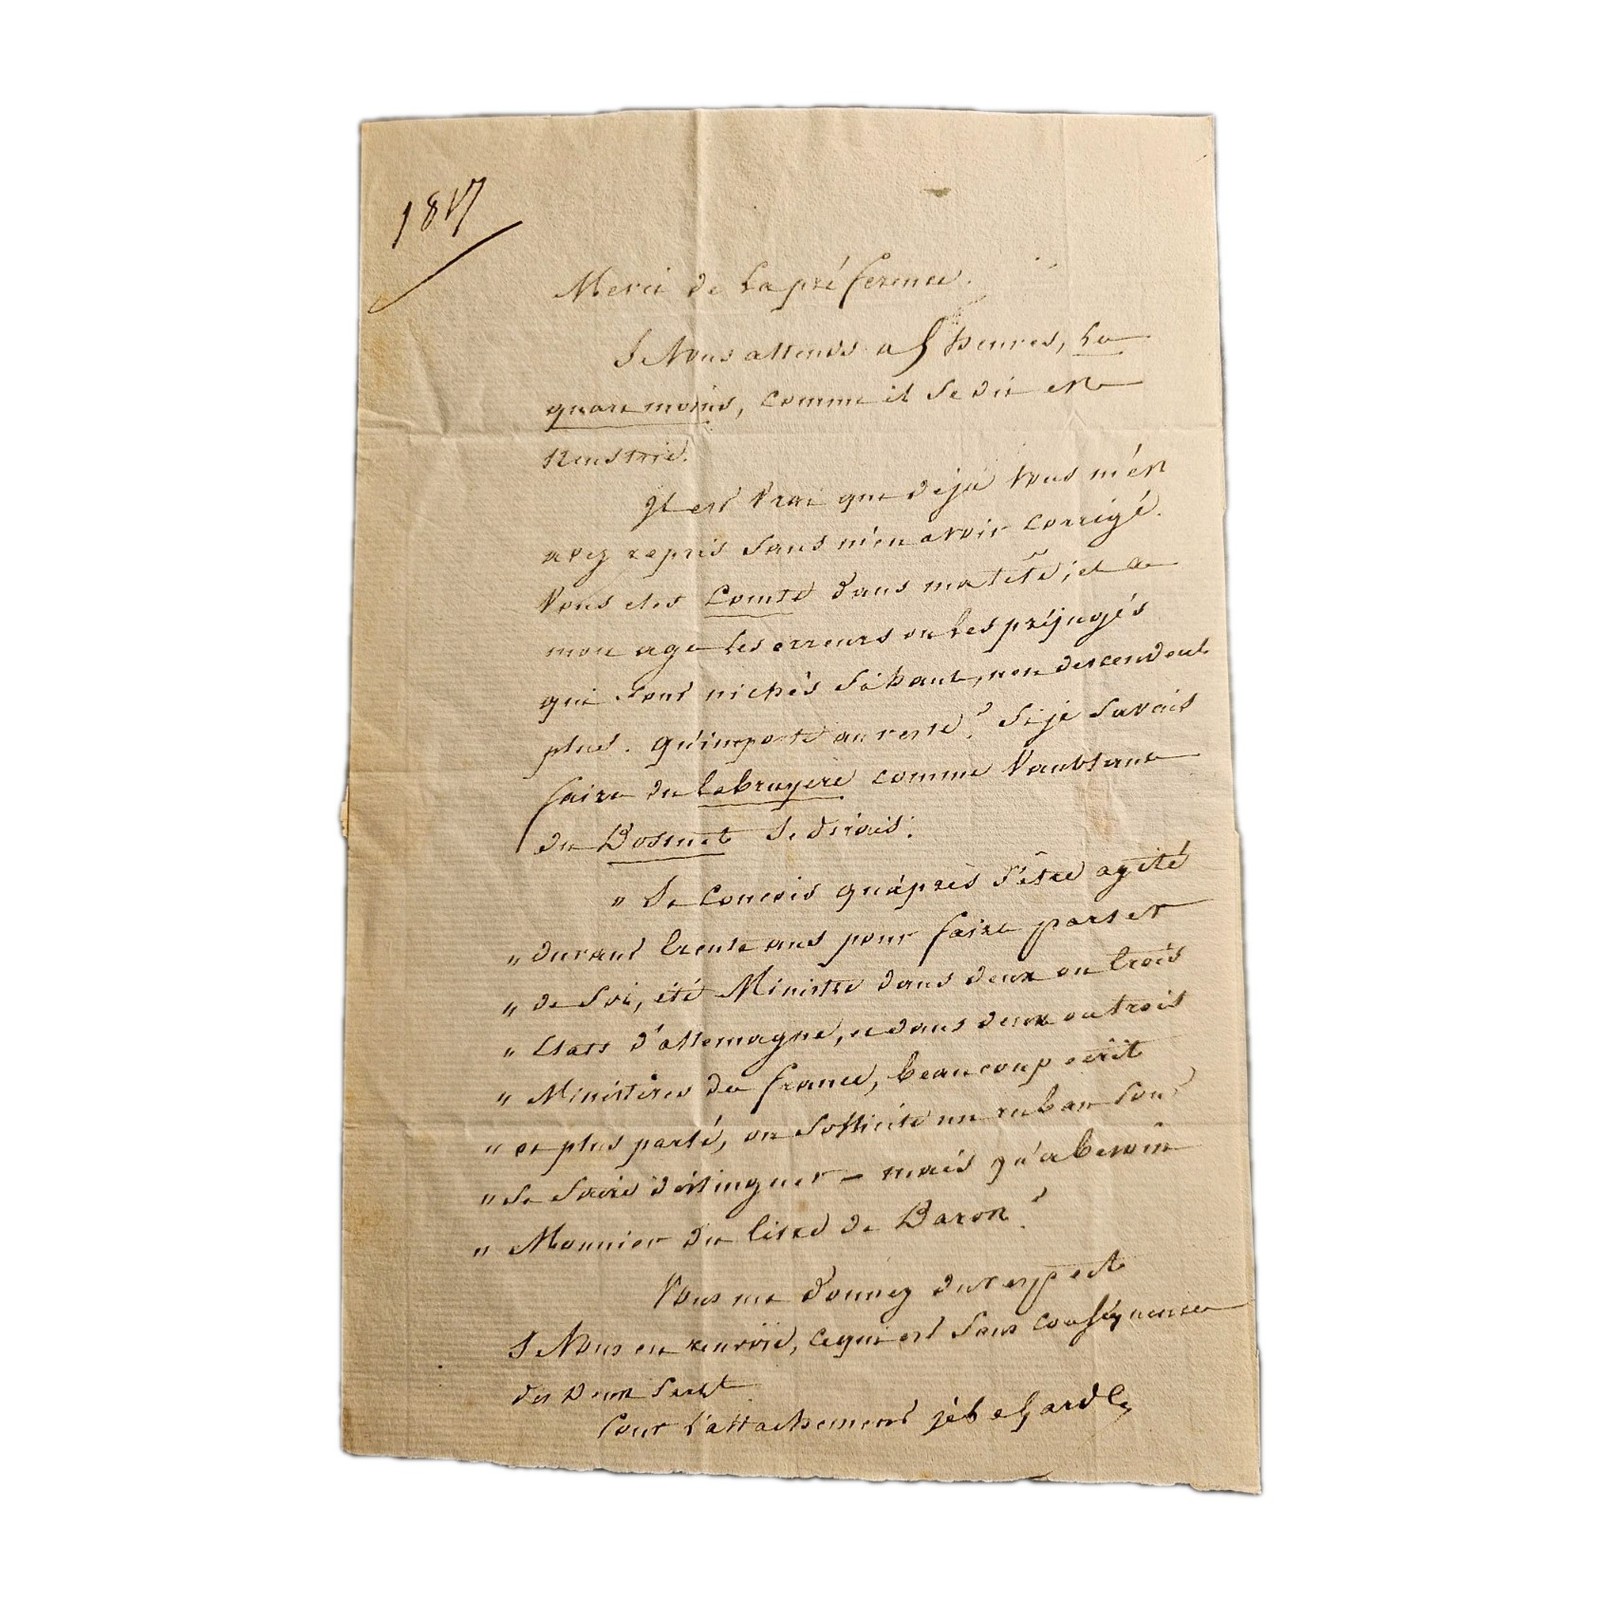 1817
Merci de la préference.
Je Vous attends a 5 heures, La
quart moins, comme il se dit en
Neustrie.
Il est Vrai que deja Vous m'en
avez repris sans m'en avoir corrigé.
Vous etes Comte dans ma tête, et a
mon age les erreurs ou les préjugés
qui sont nichés si haut, n'en descendent
plus. qu'importe au reste? Si je savais
faire du labruyere comme Vaublanc
du Bossuet Je dirais:
" Je concois qu'après s'être agité
" durant trente ans pour faire parler
" de soi, été Ministre dans deux ou trois
" Etats d'allemagne, et dans deux ou trois
" Ministères de france, beaucoup ecrit
" et plus parlé, on sollicite un ruban pour
" se faire distinguer — mais qu'a besoin
" Mounier du titre de Baron?
Vous me donnez du respect
Je Vous en renvoie, ce qui est sans conséquence
des deux parts
Pour l'attachement je le garde